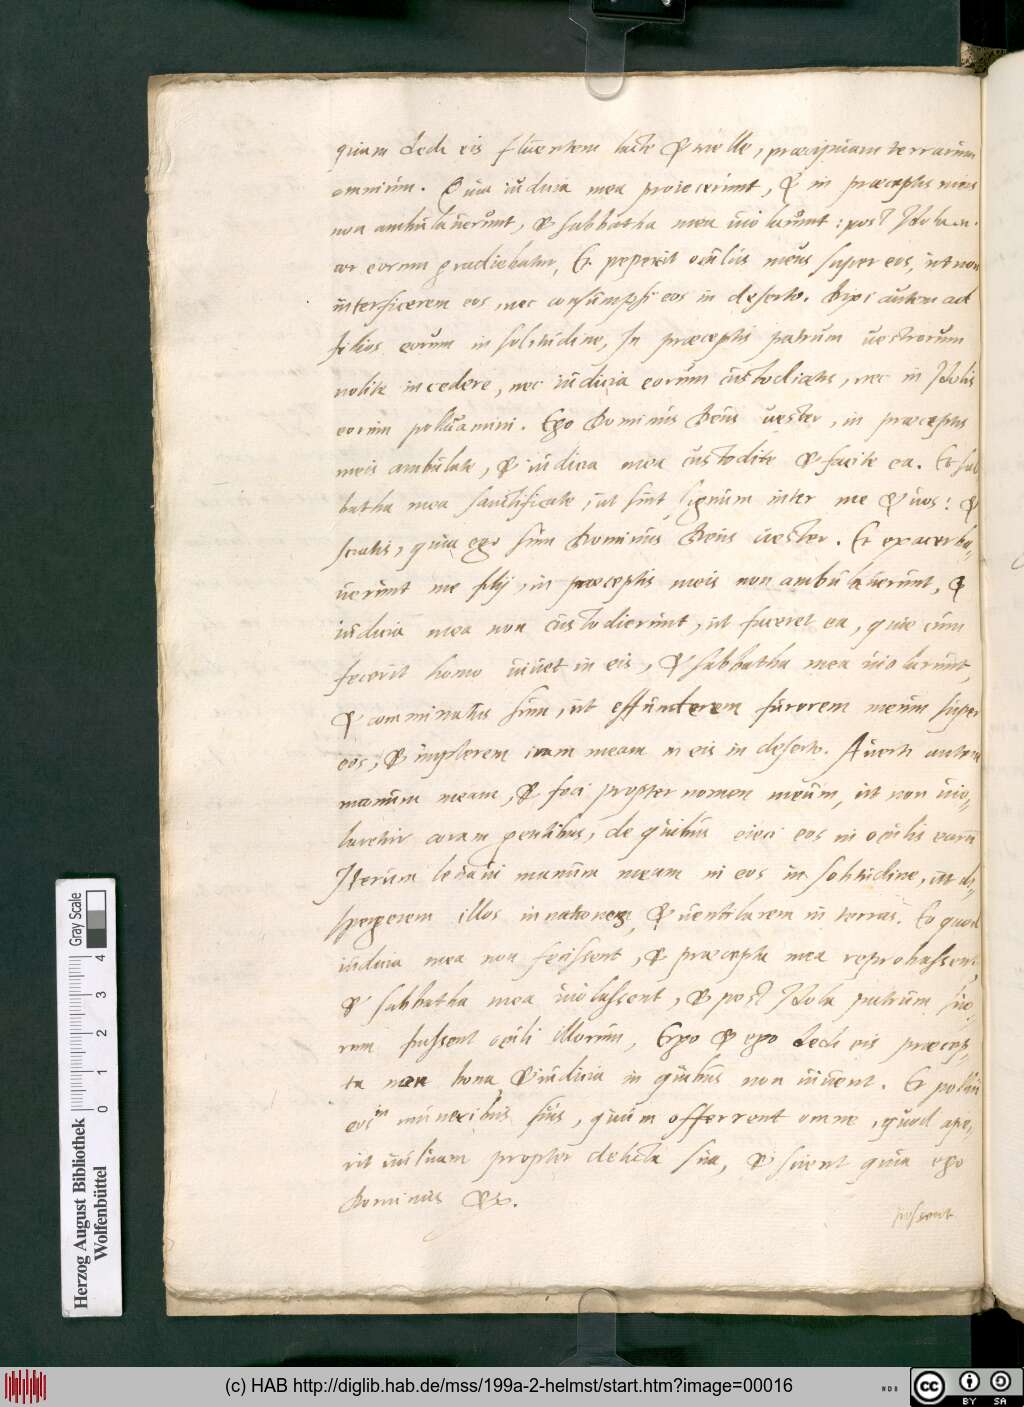 quam dedi eis fluentem lacte & melle, præcipuam terrarum
omnium. Quia iudicia mea proiecerunt, & in præceptis meis
non ambulauerunt, & sabbatha mea uiolarunt: post Idola n.
cor eorum gradiebatur, Et pepercit oculus meus super eos, ut non
interficerem eos, nec consumpsi eos in deserto. Dixi autem ad
filios eorum in solitudine, In præceptis patrum uestrorum
nolite incedere, nec iudicia eorum custodiatis, nec in Idolis
eorum polluamini. Ego Dominus Deus uester, in præceptis
meis ambulate, & iudicia mea custodite & facite ea. Et sab
batha mea sanctificate, ut sint signum inter me & uos: &
sciatis, quia ego sum Dominus Deus uester. Et exacerba„
uerunt me filij, in præceptis meis non ambulauerunt, &
iudicia mea non custodierunt, ut facerent ea, quæ cum
fecerit homo uiuet in eis, & sabbatha mea uiolarunt,
& comminatus sum, ut effunderem furorem meum super
eos, & implerem iram meam in eis in deserto. Auerti autem
manum meam, & feci propter nomen meum, ut non uio„
laretur coram gentibus, de quibus eieci eos in oculis earum
Iterum leuaui manum meam in eos in solitudine, ut di„
spergerem illos in nationes, & uentilarem in terras. Eo quod
iudicia mea non fecissent, & præcepta mea reprobassent,
& sabbatha mea uiolassent, & post Idola patrum suo„
rum fuissent oculi illorum, Ergo & ego dedi eis præcep„
ta non bona, & iudicia in quibus non uiuent. Et pollui
eos in muneribus suis, quum offerrent omne, quod ape„
rit uuluam propter delicta sua, & scient quia ego
Dominus &c.
possent
Herzog August Bibliothek
Wolfenbüttel
0 1 2 3 4
Gray Scale
(c) HAB http://diglib.hab.de/mss/199a-2-helmst/start.htm?image=00016
cc BY SA